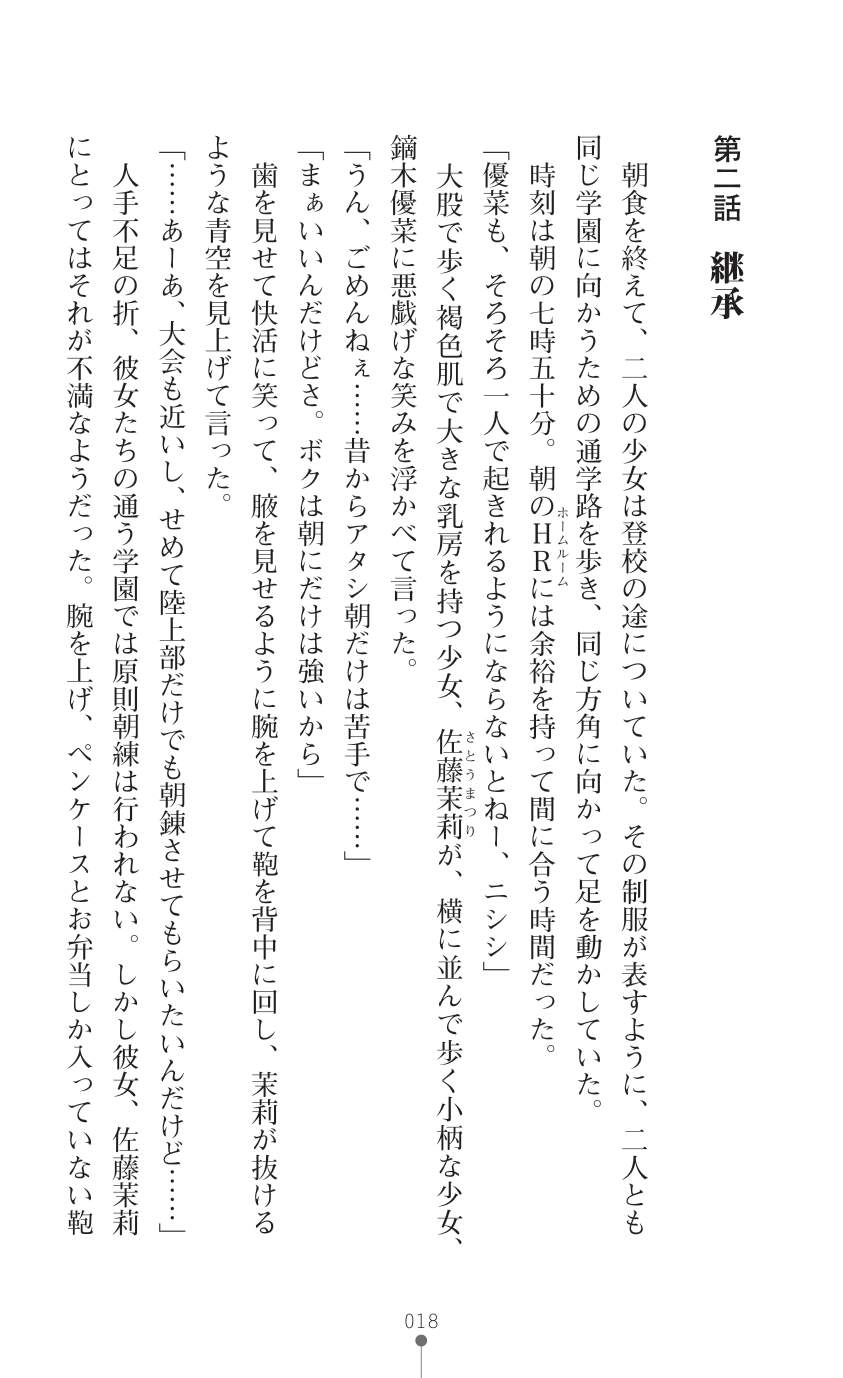 第二話　継承
　朝食を終えて、二人の少女は登校の途についていた。その制服が表すように、二人とも
同じ学園に向かうための通学路を歩き、同じ方角に向かって足を動かしていた。
　時刻は朝の七時五十分。朝のＨＲホームルームには余裕を持って間に合う時間だった。
「優菜も、そろそろ一人で起きれるようにならないとねー、ニシシ」
　大股で歩く褐色肌で大きな乳房を持つ少女、佐藤茉莉さとうまつりが、横に並んで歩く小柄な少女、
鏑木優菜に悪戯げな笑みを浮かべて言った。
「うん、ごめんねぇ……昔からアタシ朝だけは苦手で……」
「まぁいいんだけどさ。ボクは朝にだけは強いから」
　歯を見せて快活に笑って、腋を見せるように腕を上げて鞄を背中に回し、茉莉が抜ける
ような青空を見上げて言った。
「……あーあ、大会も近いし、せめて陸上部だけでも朝錬させてもらいたいんだけど……」
　人手不足の折、彼女たちの通う学園では原則朝練は行われない。しかし彼女、佐藤茉莉
にとってはそれが不満なようだった。腕を上げ、ペンケースとお弁当しか入っていない鞄
018